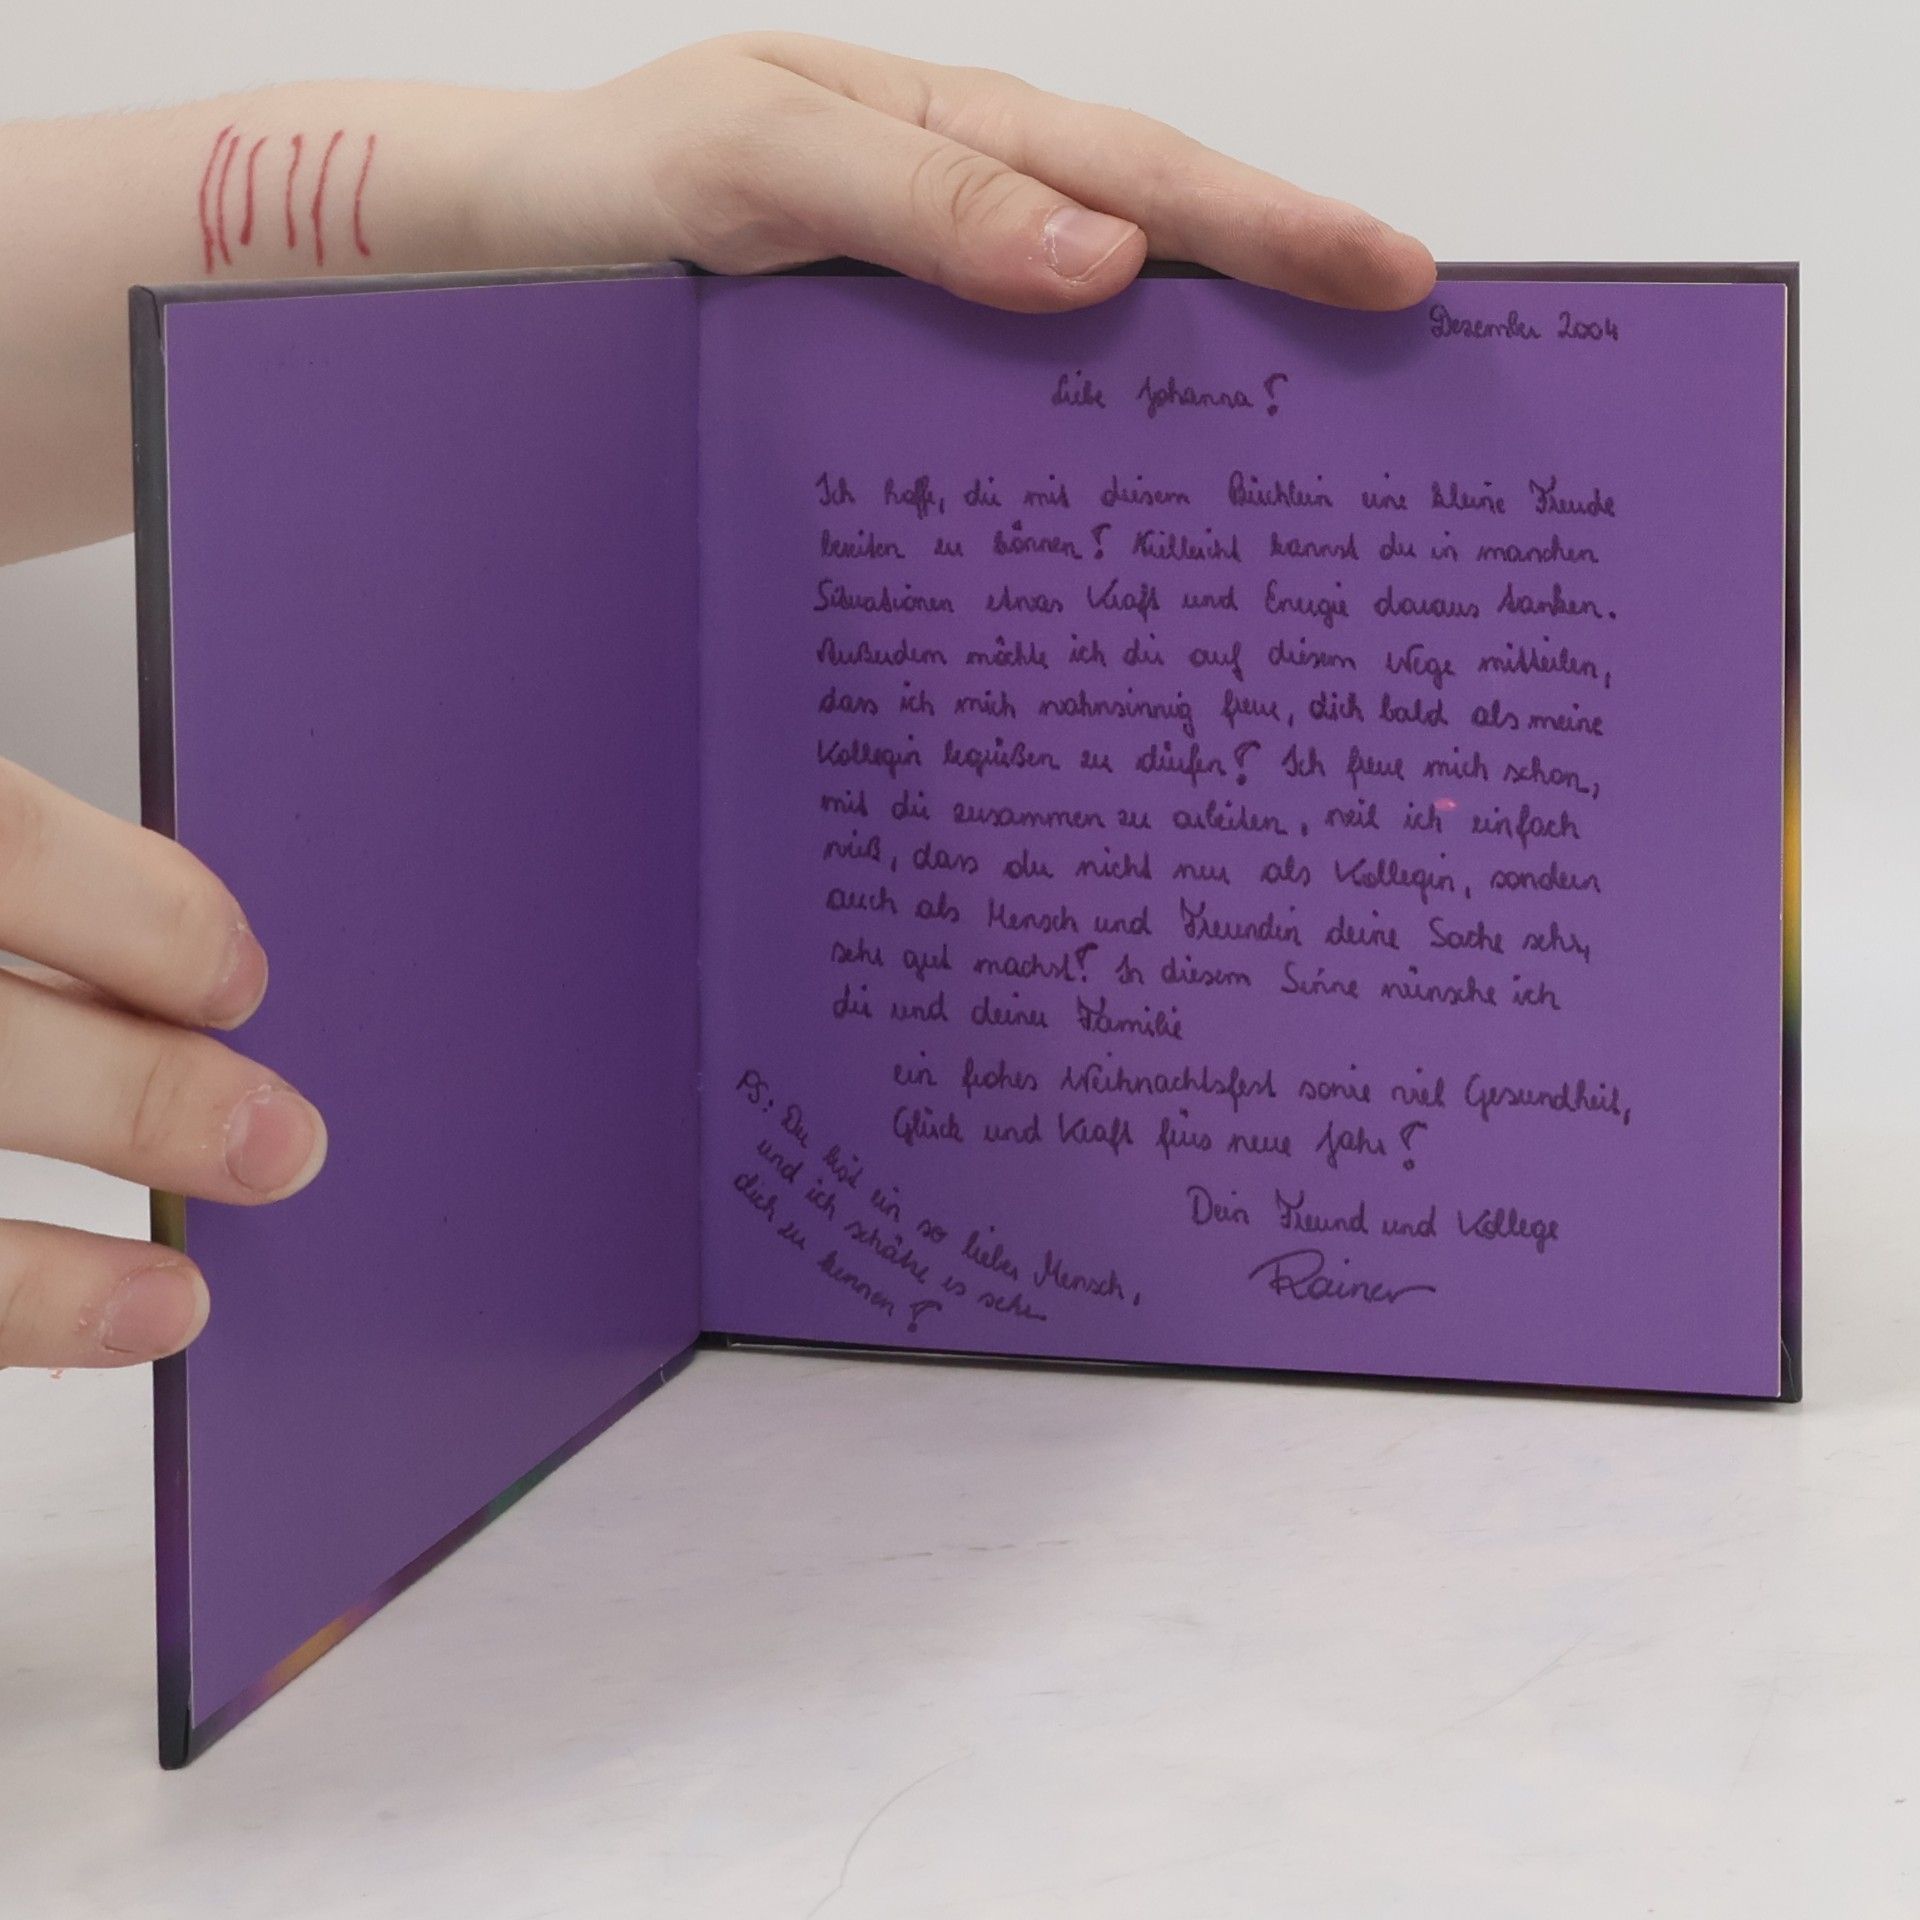 Dezember 2004
Liebe Johanna!
Ich hoffe, dir mit diesem Büchlein eine kleine Freude
bereiten zu können! Vielleicht kannst du in manchen
Situationen etwas Kraft und Energie daraus tanken.
Außerdem möchte ich dir auf diesem Wege mitteilen,
dass ich mich wahnsinnig freue, dich bald als meine
Kollegin begrüßen zu dürfen! Ich freue mich schon,
mit dir zusammen zu arbeiten, weil ich einfach
weiß, dass du nicht nur als Kollegin, sondern
auch als Mensch und Freundin deine Sache sehr,
sehr gut machst! In diesem Sinne wünsche ich
dir und deiner Familie
ein frohes Weihnachtsfest sowie viel Gesundheit,
Glück und Kraft fürs neue Jahr!
Dein Freund und Kollege
Rainer
PS: Du bist ein so lieber Mensch,
und ich schätze es sehr
dich zu kennen!